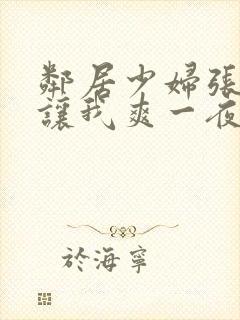 鄰居少婦張
讓我爽一夜
於海寧